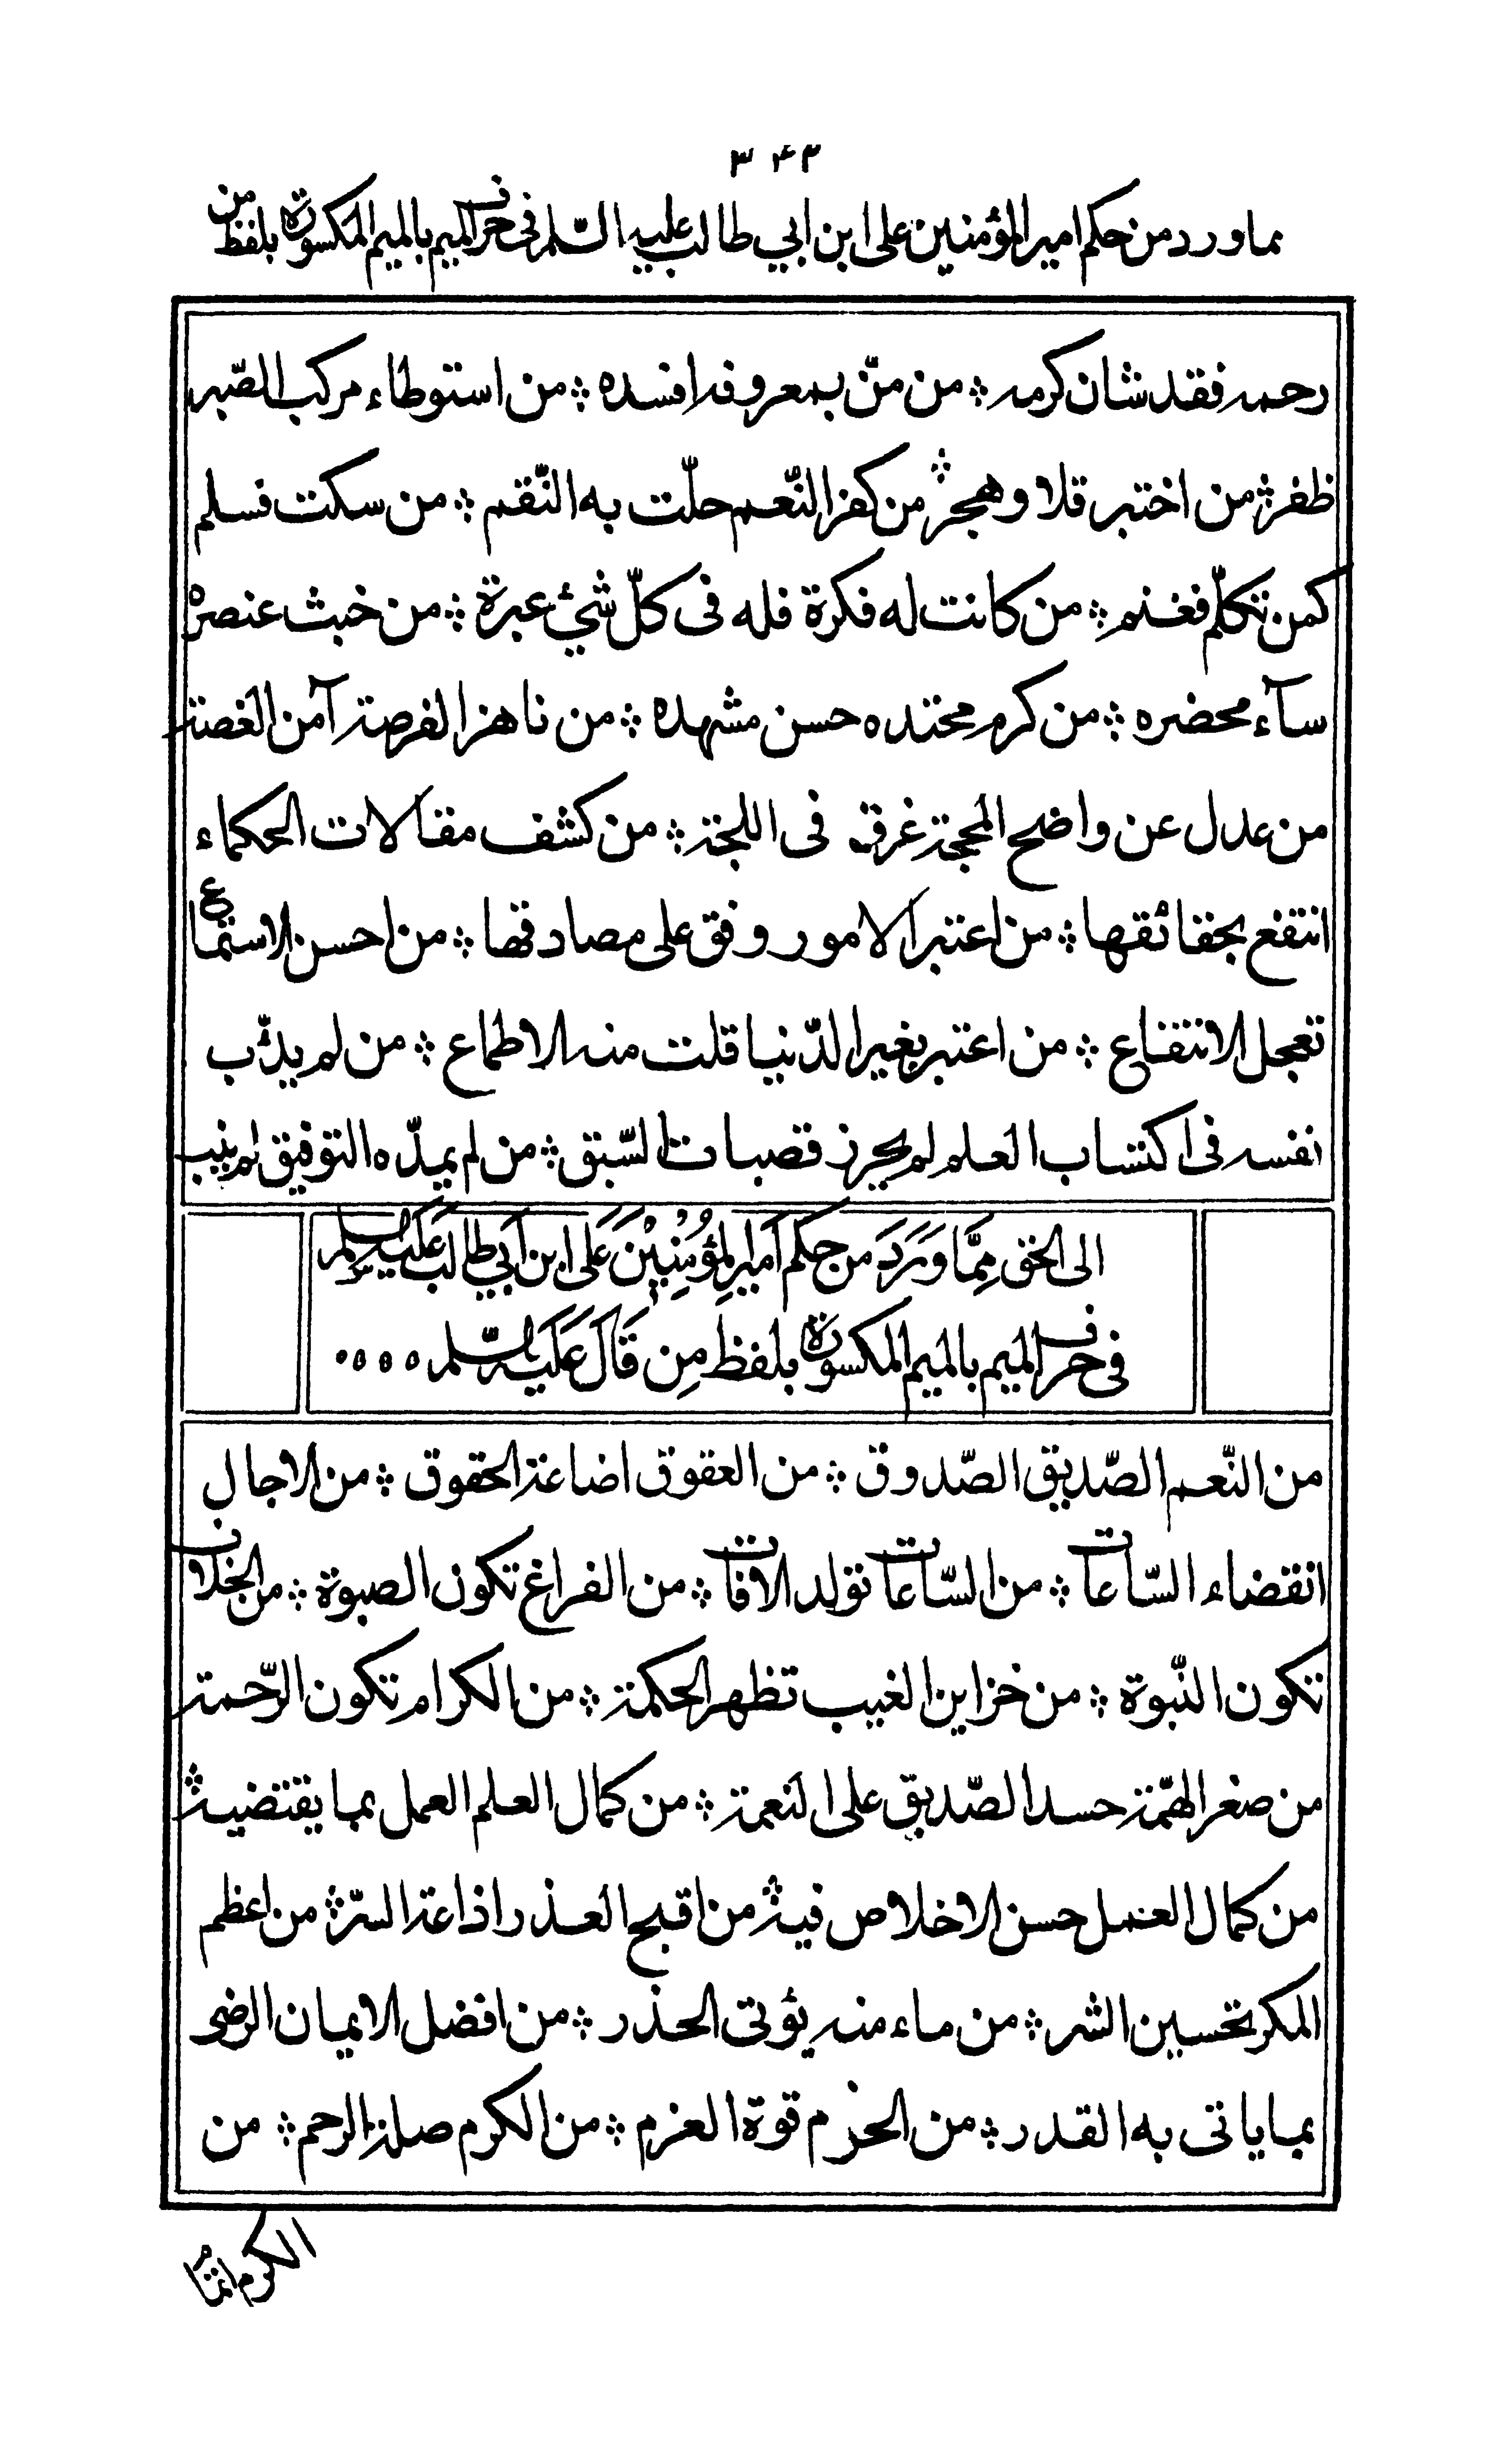 ٣٤٢
مما ورد من حكم امير المؤمنين على ابن ابي طالب عليه السّلم فى حرف الميم بالميم المكسورة بلفظ من
رحمه فقد شان كرمه ؞ من منّ بمعروفه افسده ؞ من استوطاء مركب الصّبر
ظفر ؞ من اختبر قلا وهجر ؞ من كفر النّعم حلّت به النّقم ؞ من سكت فسلم
كمن تتكلّم فغنم ؞ من كانت له فكرة فله فى كلّ شئ عبرة ؞ من خبث عنصره
سآء محضره ؞ من كرم محتده حسن مشهده ؞ من ناهز الفرصة آمن الغصة
من عدل عن واضح المحجة غرق فى اللجة ؞ من كشف مقالات الحكماء
انتفع بحقائقها ؞ من اعتبر الامور وفق على مصادقها ؞ من احسن الاستماع
تعجل الانتفاع ؞ من اعتبر بغير الدّنيا قلت منه الاطماع ؞ من لم يدئب
نفسه فى اكتساب العلم لم يحرز قصبات السّبق ؞ من لم يمدّه التوفيق لم ينب
الى الحق مِمَّا وَرَدَ من حكم اَمير المؤمِنِيْنَ عَلى ابن اَبي طالب عَلَيه السلم
فى حرف الميم بالميم المكسورة بلفظ مِن قَالَ عَلَيه السّلم
من النّعم الصّديق الصّدوق ؞ من العقوق اضاعة الحقوق ؞ من الاجال
انقضاء السّاعات ؞ من السّاعات تولد الافات ؞ من الفراغ تكون الصبوة ؞ من الخلاف
تكون النّبوة ؞ من خزاين الغيب تظهر الحكمة ؞ من الكرام تكون الرّحمة
من صغر الهمّة حسد الصّديق على النعمة ؞ من كمال العلم العمل بما يقتضيه ؞
من كمال العمل حسن الاخلاص فيه ؞ من اقبح العذر اذاعة السرّ ؞ من اعظم
المكر تحسين الشر ؞ من ماء منه يؤتى الحذر ؞ من افضل الايمان الرضى
بما ياتى به القدر ؞ من الحزم قوة العزم ؞ من الكرم صلة الرحم ؞ من
الكرم اتمام